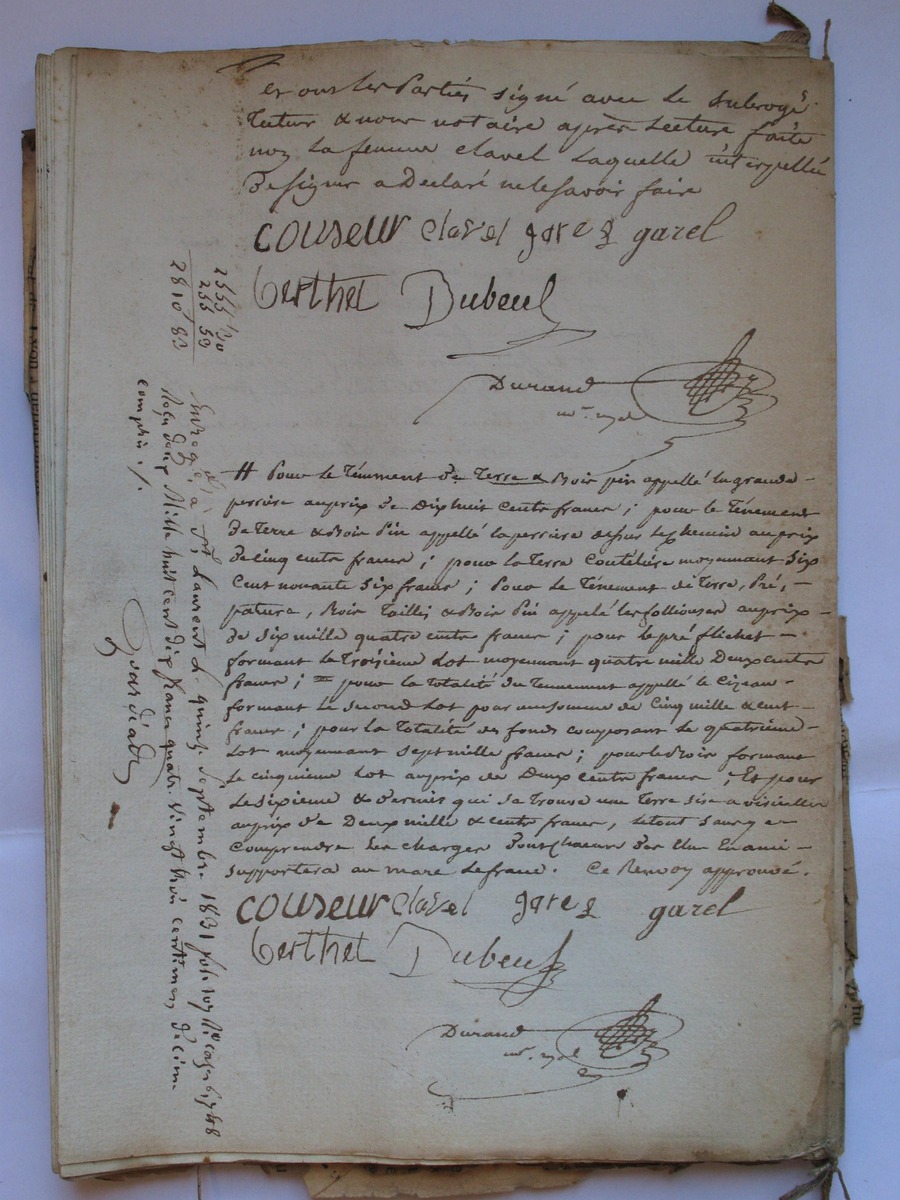 et ont les Parties signé avec le subrogé
tuteur & nous notaire après Lecture faite
non La femme Clavel Laquelle interpellée
De signer a Déclaré ne le savoir faire
couseur clavel gare & garel
berthet Dubeuf
Durand
2555 30
255 53
2810 83
# Pour le ténement De Terre & Bois pin appellé la grande
perrière au prix De Dixhuit cents francs ; pour le Ténement
De Terre & Bois Pin appellé la perrière dessus le Chemin au prix
De cinq cents francs ; pour la Terre Coutélière moyennant Six
Cent nonante Six francs ; Pour le Ténement de Terre, Pré,
pature, Bois Taillis & Bois Pin appelé les folliouses au prix
De Six mille quatre cents francs ; pour le pré flichet
formant le Troisième Lot moyennant quatre mille Deux cents
francs ; pour la Totalité du Tennement appellé le Cizeau
formant le Second Lot pour une somme de Cinq mille & cent
francs ; pour la Totalité des fonds composant le quatrième
Lot moyennant Sept mille francs ; pour le Bois formant
le cinquième Lot au prix de Deux cents francs ; Et pour
le Sixième & dernier qui se trouve une Terre sise a
au prix De Deux mille & cents francs, le tout sans y
Comprendre les charges Dont Chacun Des
supportera au marc le franc. Ce Renvoy approuvé.
couseur clavel gare & garel
berthet Dubeuf
Durand
Enregé à St Laurent le quinze septembre 1831 folio 107 Ro cases 6 7 & 8
Reçu deux Mille huit cent dix francs quatre vingt trois centimes, Décime
compris ./.